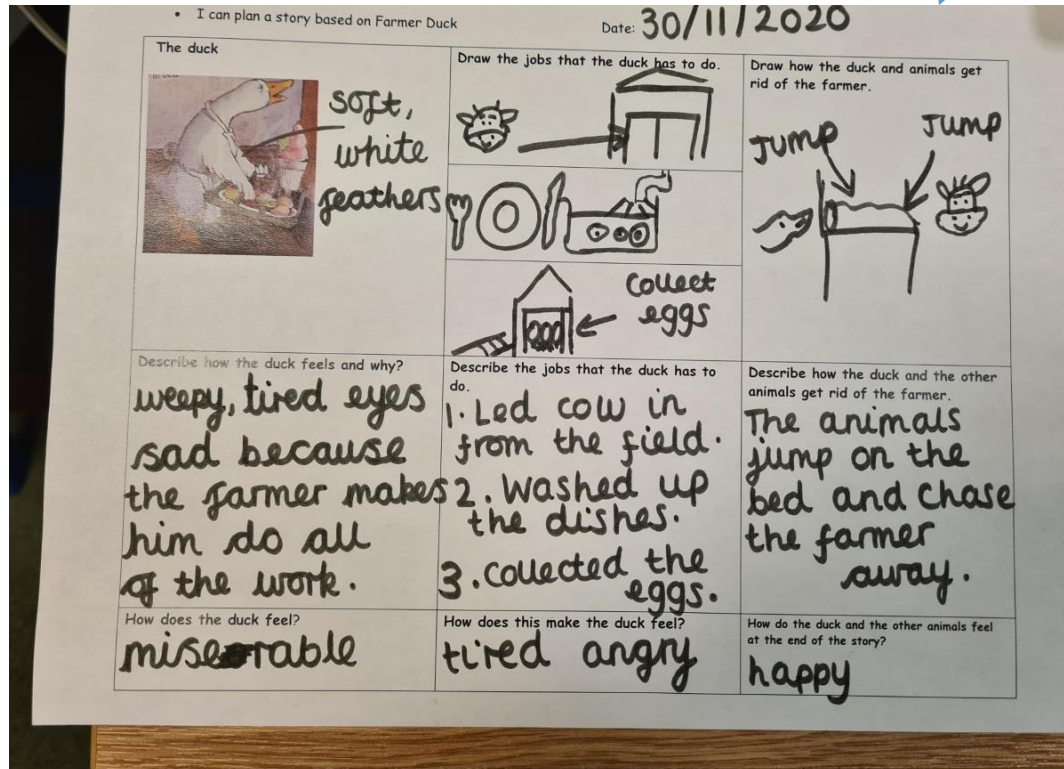 • I can plan a story based on Farmer Duck
Date: 30/11/2020
The duck
soft,
white
feathers
Draw the jobs that the duck has to do.
collect
eggs
Draw how the duck and animals get
rid of the farmer.
Jump
Jump
Describe how the duck feels and why?
weepy, tired eyes
sad because
the farmer makes
him do all
of the work.
Describe the jobs that the duck has to
do.
1. Led cow in
from the field.
2. Washed up
the dishes.
3. collected the
eggs.
Describe how the duck and the other
animals get rid of the farmer.
The animals
jump on the
bed and chase
the farmer
away.
How does the duck feel?
miserable
How does this make the duck feel?
tired angry
How do the duck and the other animals feel
at the end of the story?
happy